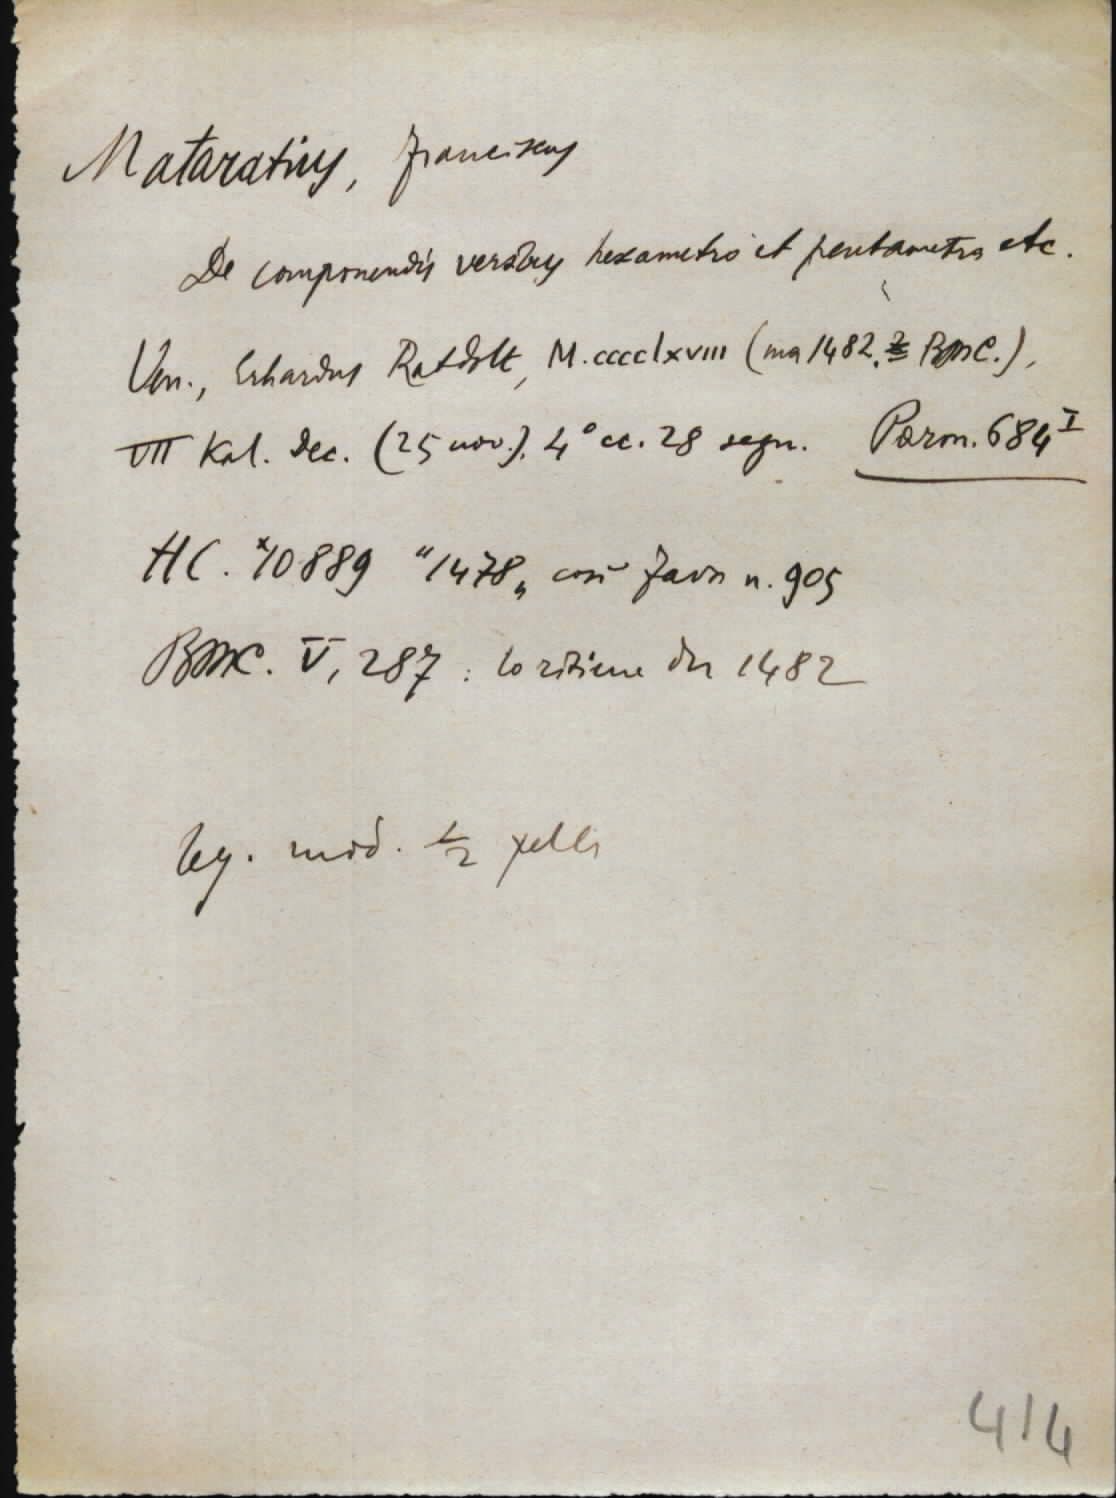 Mataratius, Franciscus
De componendis versibus hexametro et pentametro etc.
Ven., Erhardus Ratdolt, M.cccclxviii (ma 1482. BMC.),
VII Kal. Dec. (25 nov.). 4° cc. 28 segn. Parm. 684 I
HC. *10889 "1478" così Fava n. 905
BMC. V, 287 : lo ritiene del 1482
leg. mod. ½ pelle
414